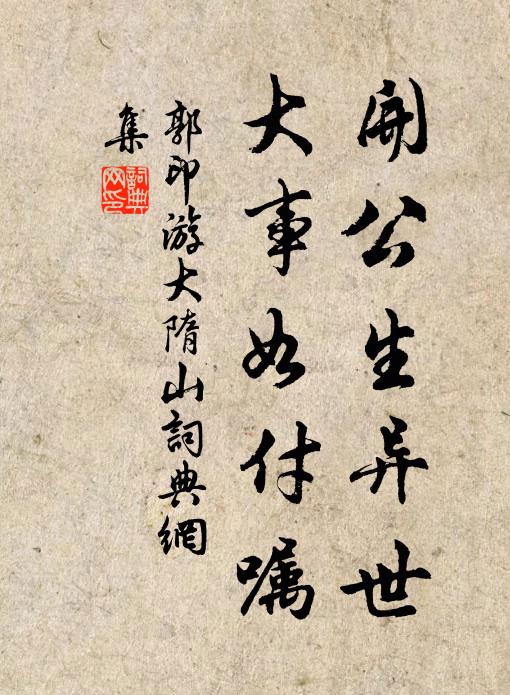 開公生异世
大事如付嘱
郭印游大隋山詞典網
集
詞典网印